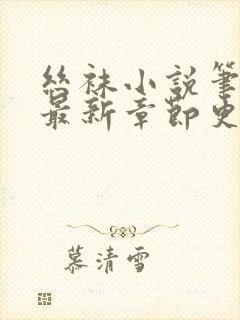 絲袜小説筆
最新章節更
慕清雪